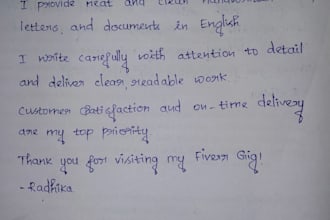 I provide neat and clean
letters, and documents in English
I write carefully with attention to detail
and deliver clear, readable work.
Customer Satisfaction and on-time delivery
are my top priority
Thank you for visiting my Fiverr Gig!
- Radhika